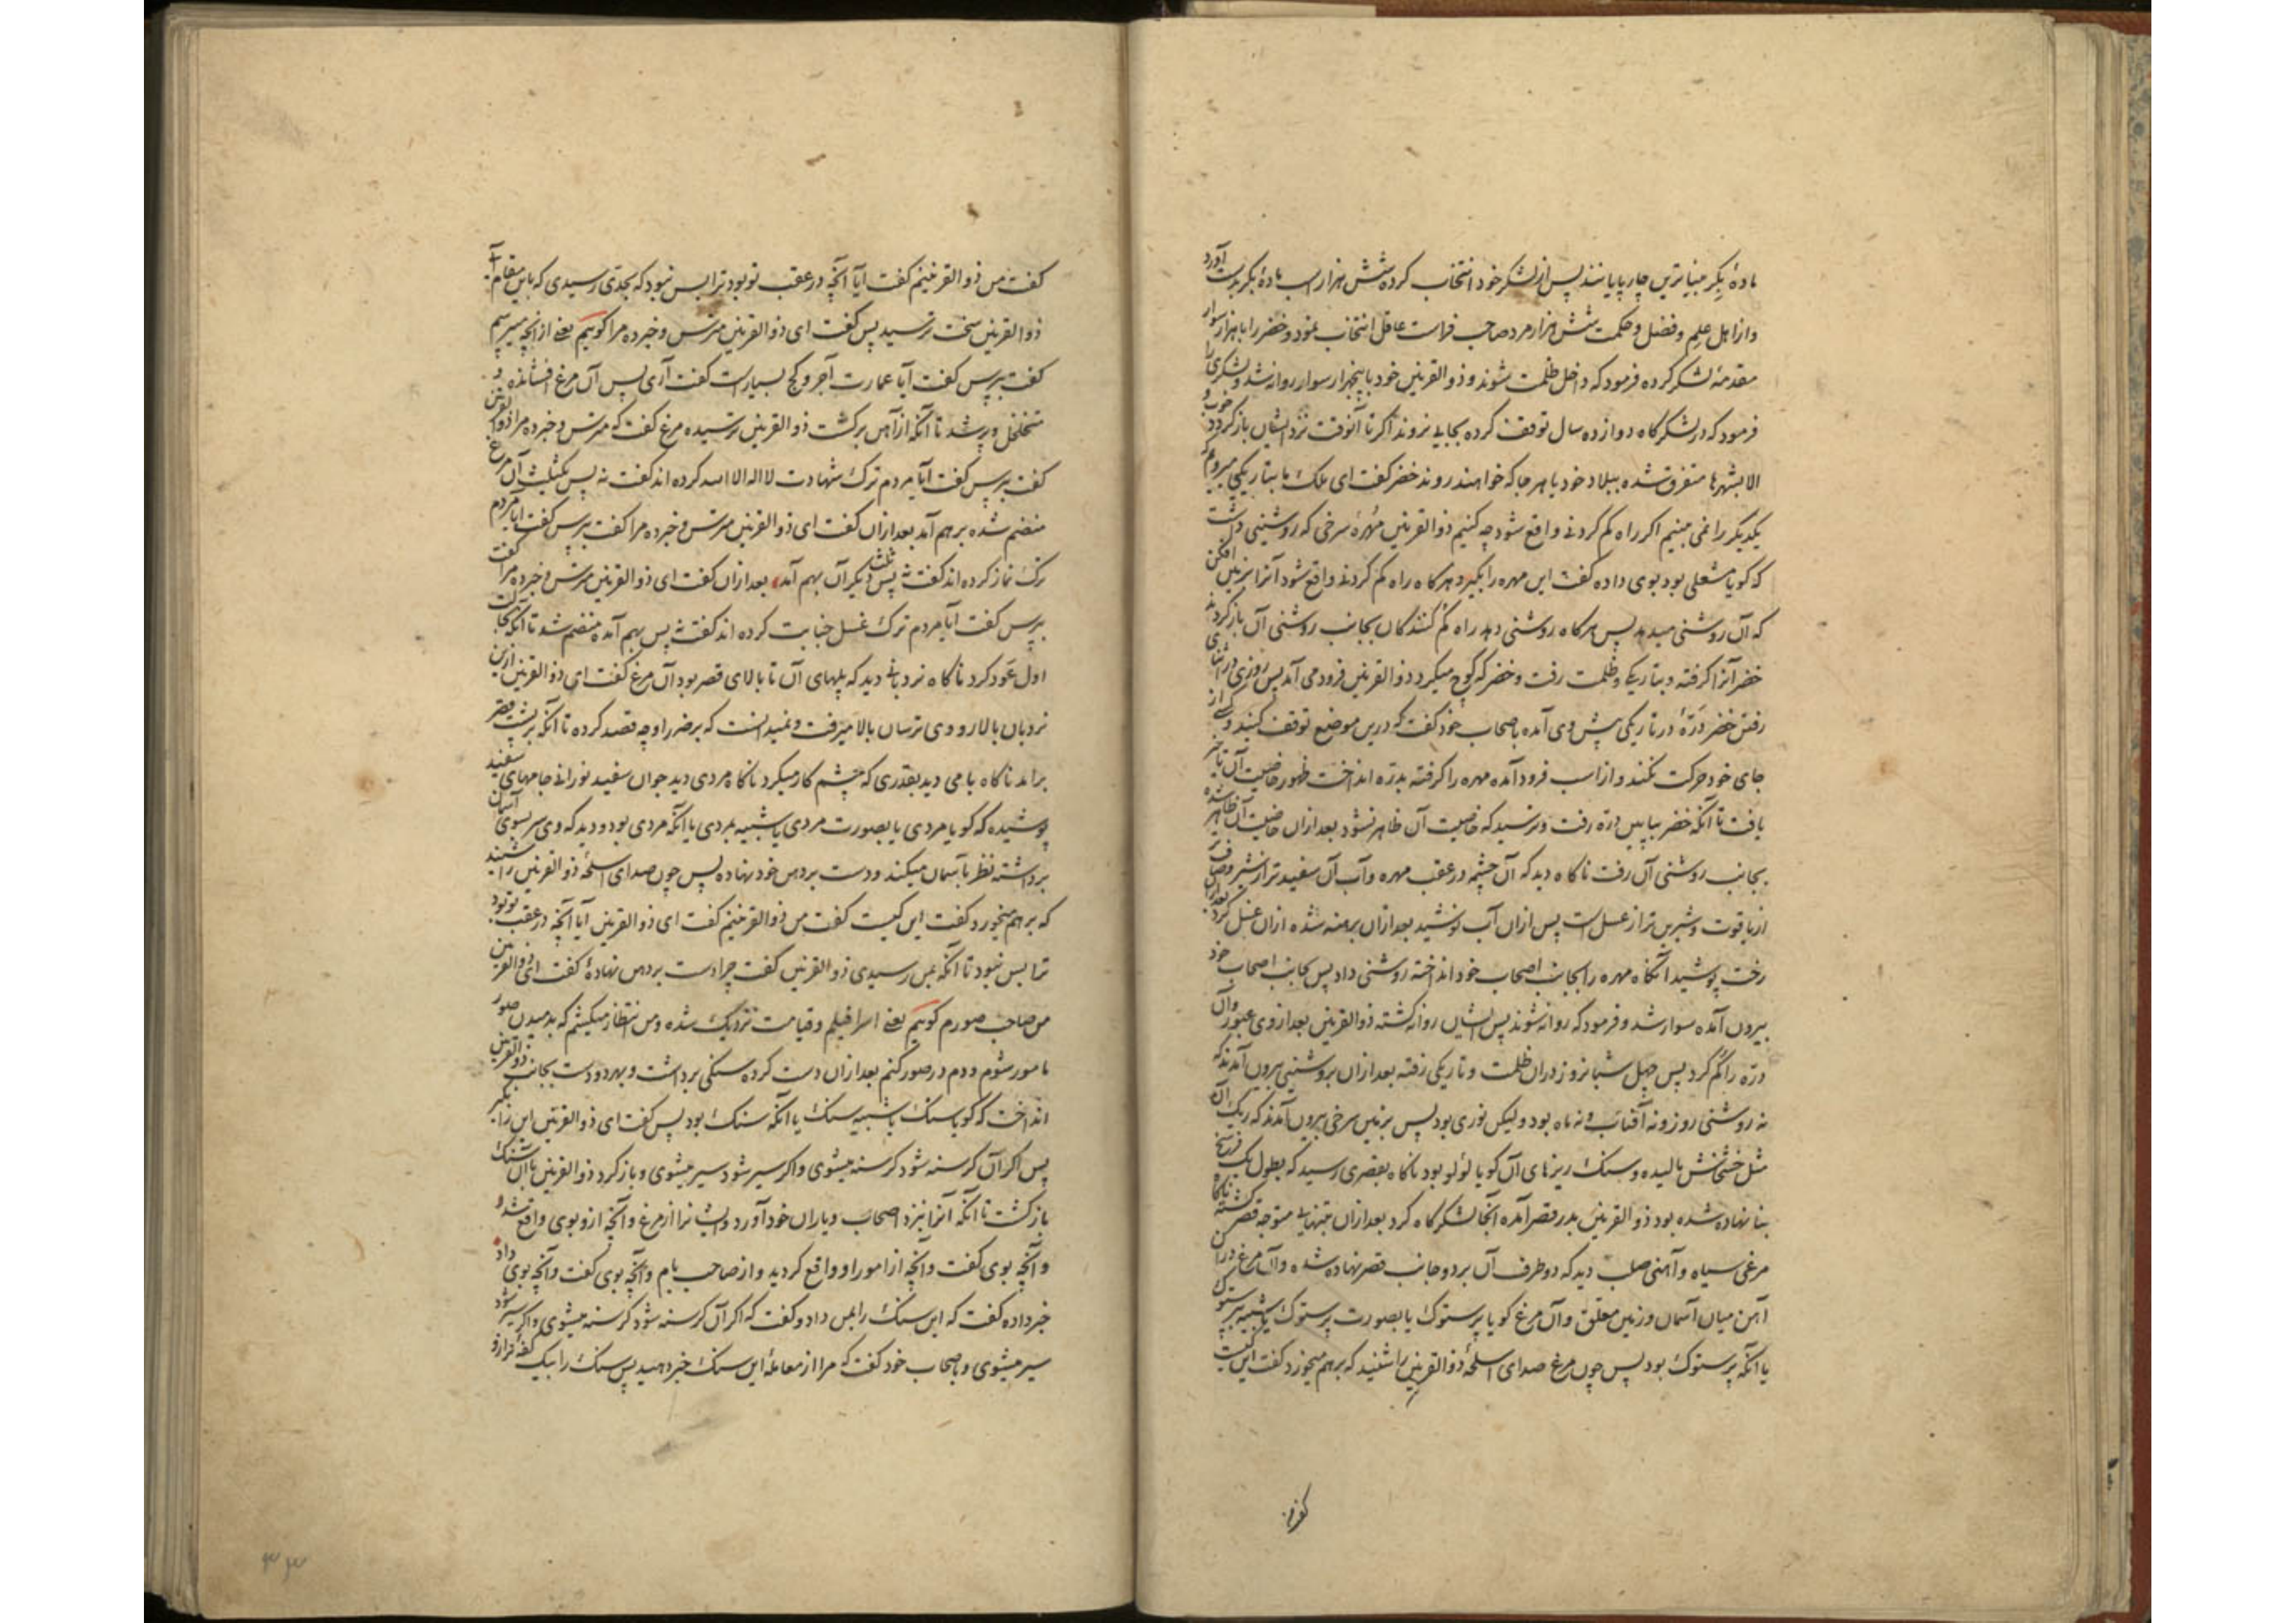 مادهٔ بکر بیناترین چارپایانند پس از لشکر خود انتخاب کرده شش هزار اسب مادهٔ بکر بدست آورد
و از اهل علم و فضل و حکمت شش هزار مرد صاحب فراست عاقل انتخاب نمود و خضر را با هزار سوار
مقدمهٔ لشکر کرده فرمود که داخل ظلمت شوند و ذوالقرنین خود با پنجهزار سوار روانه شد و لشکری را
فرمود که در لشکرگاه دوازده سال توقف کرده بجایی نروند اگر تا آنوقت نزد ایشان بازگردد خوب و
الا بشهرها متفرق شده ببلاد خود یا هر جا که خواهند روند خضر گفت ای ملک ما بتاریکی میرویم که
یکدیگر را نمی بینیم اگر راه گم کردنی واقع شود چه کنیم ذوالقرنین مهرهٔ سرخی که روشنیی داشت
که گویا مشعلی بود بوی داده گفت این مهره را بگیر و هرگاه راه گم کردنی واقع شود آنرا بزمین افکن
که آن روشنی میدهد پس هرگاه روشنی دهد راه گم کنندگان بجانب روشنی آن بازگردند
خضر آنرا گرفته و بتاریکی و ظلمت رفت و خضر که کوچ میکرد ذوالقرنین فرود می آمد پس روزی در اثنای
رفتن خضر درّهٔ در تاریکی پیش وی آمده باصحاب خود گفت که درین موضع توقف کنید و کسی از
جای خود حرکت نکند و از اسب فرود آمده مهره را گرفته بدره انداخت ظهور خاصیت آن تاخیر
یافت تا آنکه خضر بپایین دره رفت و ترسید که خاصیت آن ظاهر نشود بعد ازان خاصیت آن ظاهر شده
بجانب روشنی آن رفت ناگاه دید که آن چشمه در عقب مهره و آب آن سفید تر از شیر و صاف تر
از یاقوت و شیرین تر از عسل است پس ازان آب نوشید بعد ازان برهنه شده ازان غسل کرد بعد ازان
رخت پوشید آنگاه مهره را بجانب اصحاب خود انداخته روشنی داد پس بجانب اصحاب خود
بیرون آمده سوار شد و فرمود که روانه شوند پس ایشان روانه گشته ذوالقرنین بعد از وی عبور و آن
دره را گم کرد پس چهل شبانروز دران ظلمت و تاریکی رفته بعد ازان بروشنیی بیرون آمدند که
نه روشنی روز و نه آفتاب و نه ماه بود ولیکن نوری بود پس بزمین سرخی بیرون آمدند که ریگ آن
مثل خشخش مالیده و سنگ ریزهای آن گویا لؤلؤ بود ناگاه بقصری رسید که بطول یک فرسخ
بنا نهاده شده بود ذوالقرنین بدر قصر آمده آنجا لشکرگاه کرد بعد ازان بتنهایی متوجه قصر گشته ناگاه
مرغی سیاه و آهنی صلب دید که دو طرف آن بر دو جانب قصر نهاده شده و آن مرغ در آن
آهن میان آسمان و زمین معلق و آن مرغ گویا پرستوک یا بصورت پرستوک یا شبیه بپرستوک
یا آنکه پرستوک بود پس چون مرغ صدای اسلحهٔ ذوالقرنین را شنید که برهم میخورد گفت این کیست
گفت من
گفت من ذوالقرنینم گفت آیا آنچه در عقب تو بود ترا بس نبود که بحدی رسیدی که باین مقام آمدی
ذوالقرنین سخت ترسید پس گفت ای ذوالقرنین مترس و خبر ده مرا گوییم یعنی از آنچه میپرسم
گفت بپرس گفت آیا عمارت آجر و گچ بسیارست گفت آری پس آن مرغ افشانده و
متخلخل و پر شد تا آنکه از آهن برگشت ذوالقرنین ترسیده مرغ گفت که مترس و خبر ده مرا ذوالقرنین
گفت بپرس گفت آیا مردم ترک شهادت لا اله الا الله کرده اند گفت نه پس ثلث آن مرغ
منضم شده برهم آمد بعد ازان گفت ای ذوالقرنین مترس و خبر ده مرا گفت بپرس گفت آیا مردم
ترک نماز کرده اند گفت نه پس ثلث دیگر آن بهم آمد بعد ازان گفت ای ذوالقرنین مترس و خبر ده مرا گفت
بپرس گفت آیا مردم ترک غسل جنابت کرده اند گفت نه پس بهم آمده منضم شد تا آنکه بحالت
اول عود کرد ناگاه نردبانی دید که پلهای آن تا بالای قصر بود آن مرغ گفت ای ذوالقرنین ازین
نردبان بالا رو وی ترسان بالا میرفت و نمیدانست که بر ضرر او چه قصد کرده تا آنکه بر پشت قصر
برآمد ناگاه بامی دید بقدری که چشم کار میکرد ناگاه مردی دید جوان سفید نورانی جامهای سفید
پوشیده که گویا مردی یا بصورت مردی یا شبیه بمردی یا آنکه مردی بود و دید که وی سر بسوی آسمان
برداشته نظر بآسمان میکند و دست بر دهن خود نهاده پس چون صدای اسلحهٔ ذوالقرنین را شنید
که برهم میخورد گفت این کیست گفت من ذوالقرنینم گفت ای ذوالقرنین آیا آنچه در عقب تو بود
ترا بس نبود تا آنکه بمن رسیدی ذوالقرنین گفت چرا دست بر دهن نهادهٔ گفت ای ذوالقرنین
من صاحب صورم گوییم یعنی اسرافیلم و قیامت نزدیک شده و من انتظار میکشم که بدمیدن صور
مامور شوم و دم در صور کنم بعد ازان دست کرده سنگی برداشت و بهر دو دست بجانب ذوالقرنین
انداخت که گویا سنگ یا شبیه سنگ یا آنکه سنگ بود پس گفت ای ذوالقرنین این را بگیر
پس اگر آن گرسنه شود گرسنه میشوی و اگر سیر شود سیر میشوی و باز گرد ذوالقرنین با آن سنگ
بازگشت تا آنکه آنرا بنزد اصحاب و یاران خود آورد و ایشانرا از مرغ و آنچه ازو بوی واقع شد و
و آنچه بوی گفت و آنچه از امور او واقع گردید و از صاحب بام و آنچه بوی گفت و آنچه بوی داد
خبر داده گفت که این سنگ را بمن داد و گفت که اگر آن گرسنه شود گرسنه میشوی و اگر سیر شود
سیر میشوی و باصحاب خود گفت که مرا از معاملهٔ این سنگ خبر دهید پس سنگ را بیک کفهٔ ترازو
۳۳